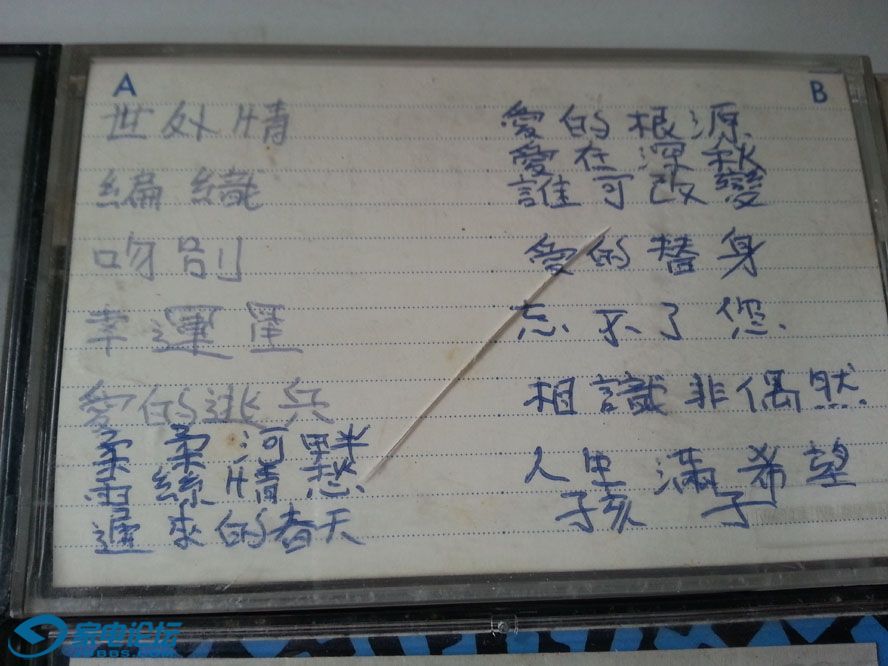 A
世外情
編織
吻別
幸運星
愛的逃兵
柔柔河畔
雨絲情愁
遲來的春天
B
愛的根源
愛在深秋
誰可改變
愛的替身
忘不了您
相識非偶然
人生滿希望
孩子
家电论坛